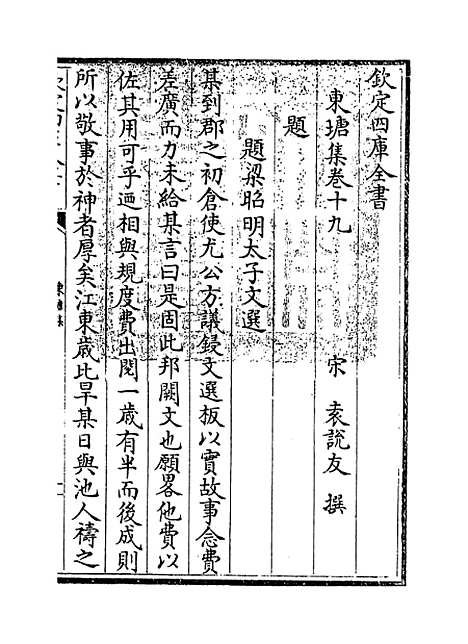 欽定四庫全書
東塘集卷十九
宋 袁說友 撰
題
題梁昭明太子文選
某到郡之初倉使尤公方議鋟文選板以實故事念費
差廣而力未給某言曰是固此邦闕文也願畧他費以
佐其用可乎迺相與規度費出閱一歳有半而後成則
所以敬事於神者厚矣江東歳比旱某日與池人禱之
東塘集